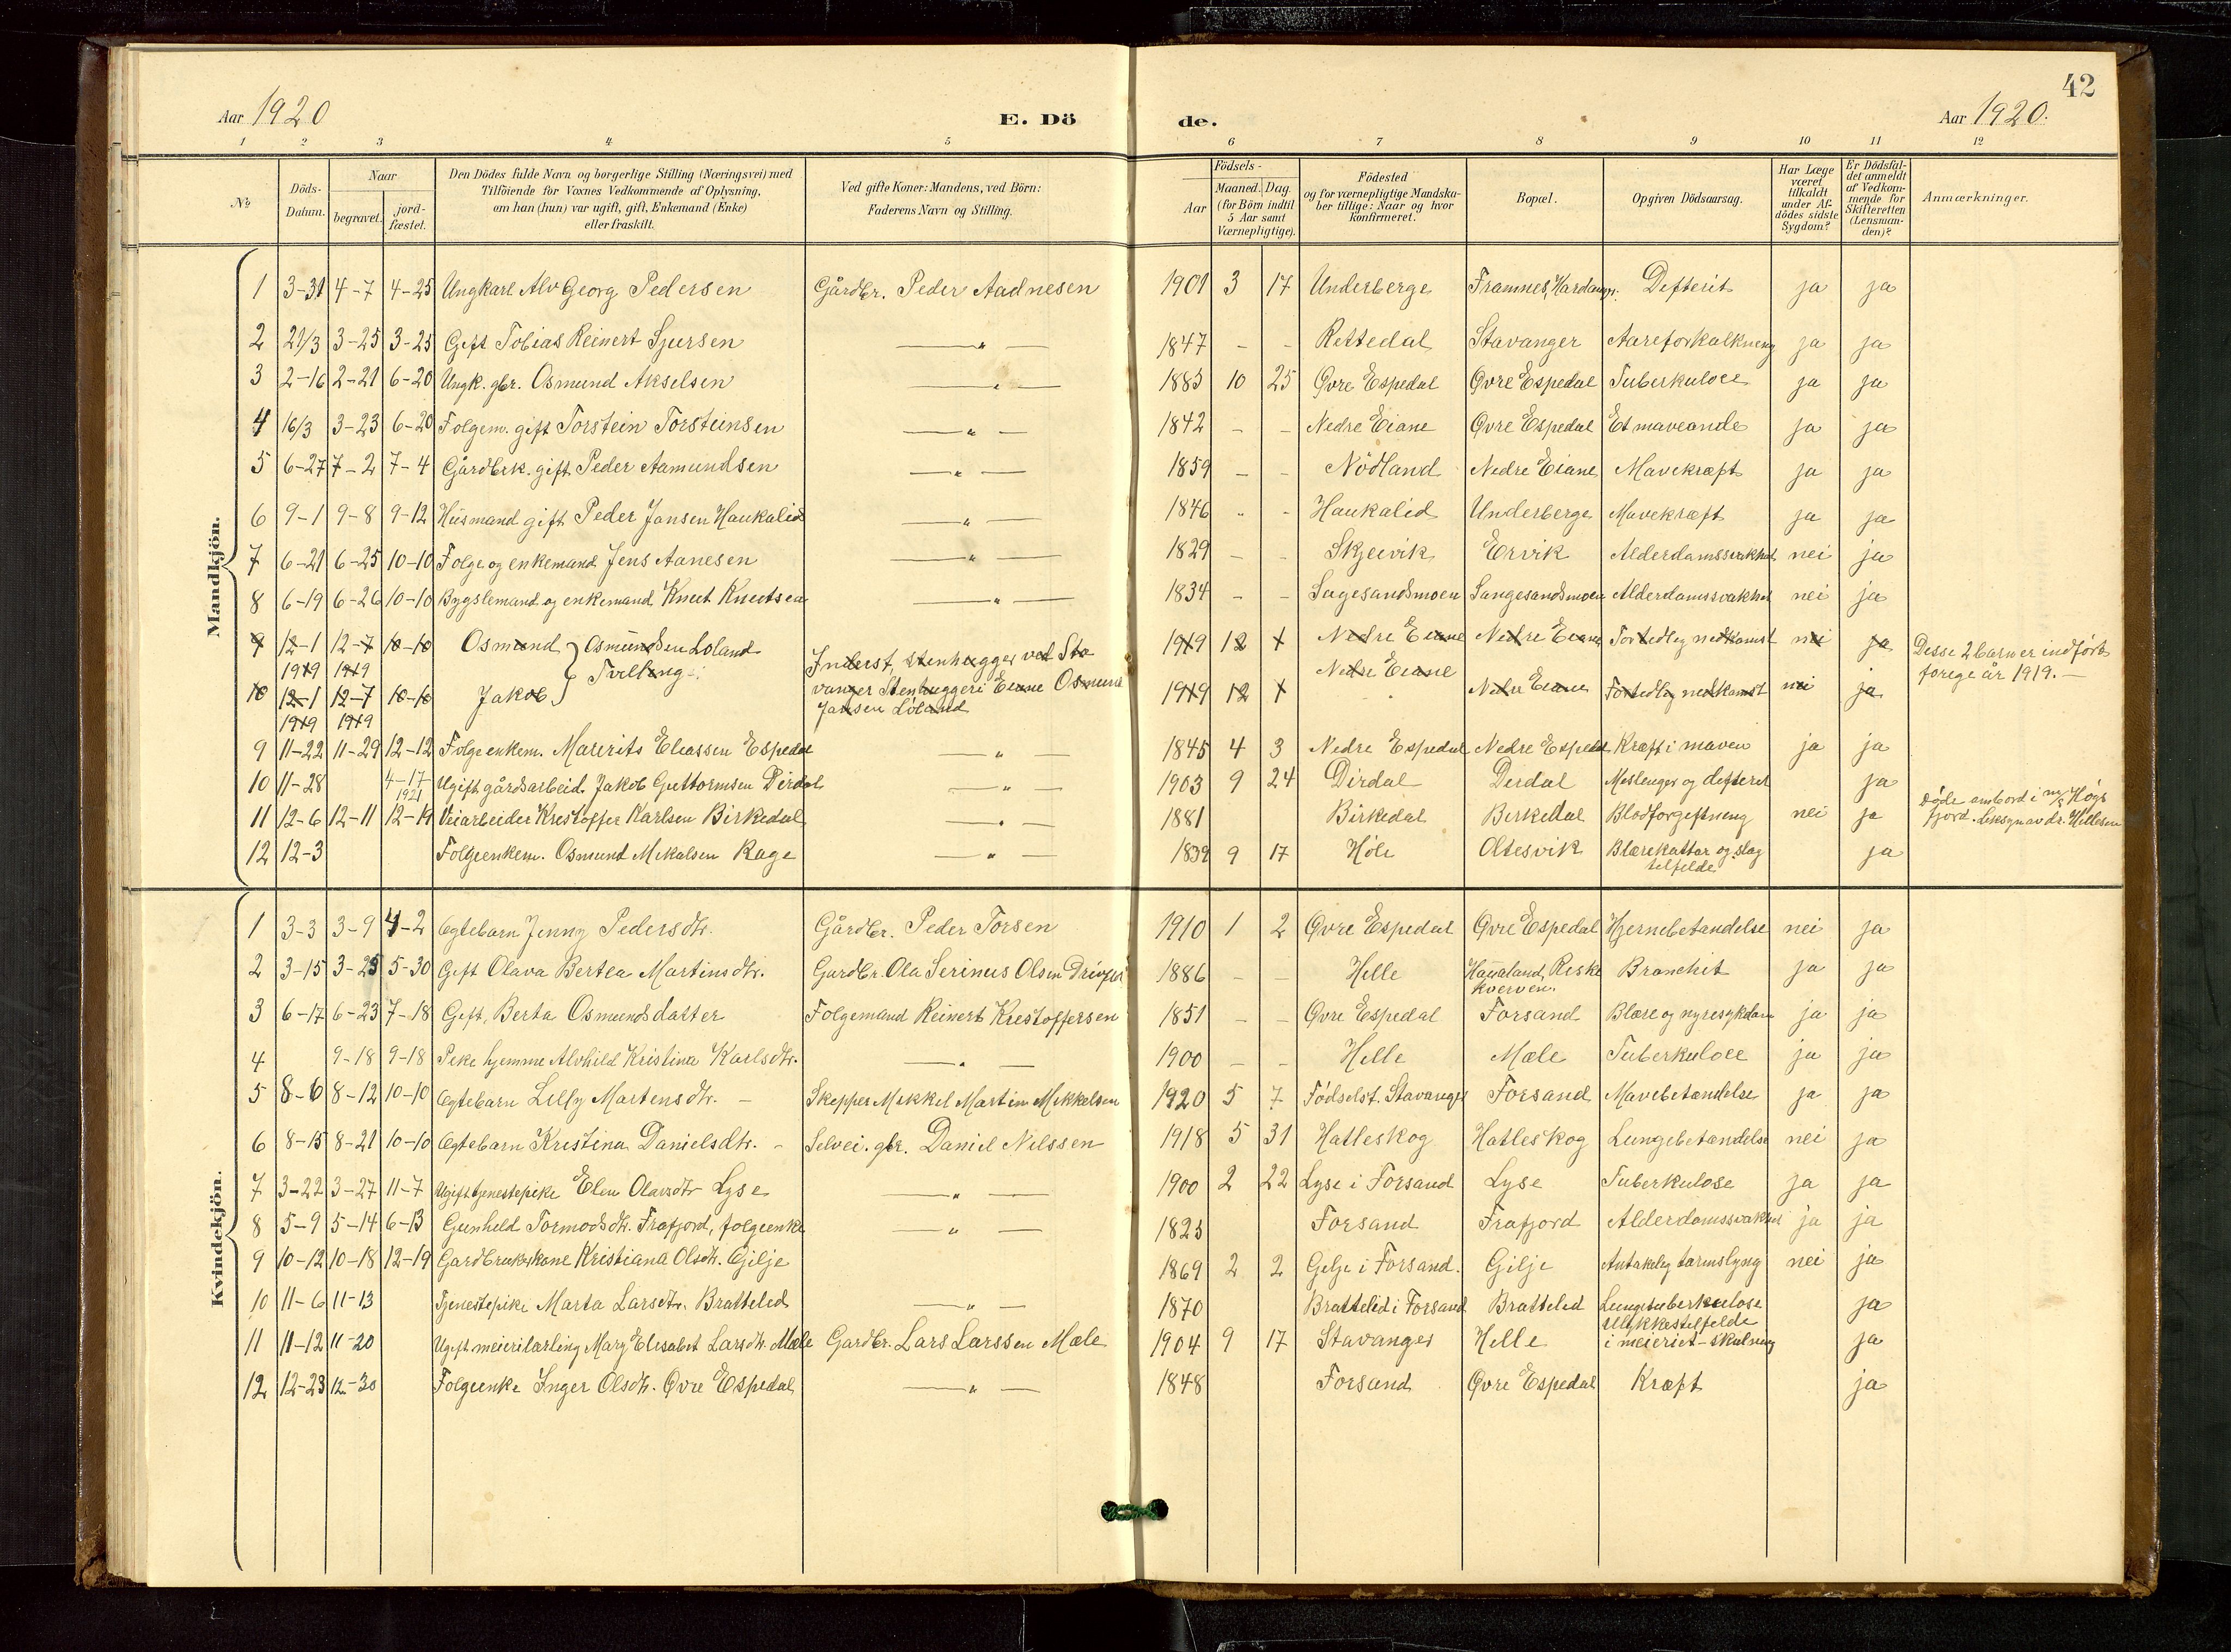 42
Aar 1920
E. Dö
de.
Aar 1920.
1 2 3 4 5 6 7 8 9 10 11 12
No
Döds-Datum.
Naar
begravet.
jord-fæstet.
Den Dödes fulde Navn og borgerlige Stilling (Næringsvei) med
Tilföiende for Voxnes Vedkommende af Oplysning,
om han (hun) var ugift, gift, Enkemand (Enke)
eller fraskilt.
Ved gifte Koner: Mandens, ved Börn:
Faderens Navn og Stilling.
Födsels-
Aar
Maaned. Dag.
(for Börn indtil
5 Aar samt
Værnepligtige).
Födested
og for værnepligtige Mandska-
ber tillige: Naar og hvor
konfirmeret.
Bopæl.
Opgiven Dödsaarsag.
Har Læge
været
tilkaldt
under Af-
dödes sidste
Sygdom?
Er Dödsfal-
det anmeldt
af Vedkom-
mende for
Skifteretten
(Lensman-
den)?
Anmærkninger.
Mandkjön.
1 3-31 4-7 4-25 Ungkarl Alv Georg Pedersen Gårdbr. Peder Aadnesen 1901 3 17 Underberge Framnes, Hardangr. Defterit ja ja
2 21/3 3-25 3-25 Gift Tobias Reinert Sjursen — " — 1847 - - Rettedal Stavanger Aareforkalkneng ja ja
3 2-16 2-21 6-20 Ungk. gbr. Osmund Akselsen — " — 1885 10 25 Øvre Espedal Øvre Espedal Tuberkulose ja ja
4 16/3 3-23 6-20 Folgem. gift Torstein Torsteinsen — " — 1842 - - Nedre Eiane Øvre Espedal Et maveonde ja ja
5 6-27 7-2 7-4 Gårdbrk. gift Peder Aamundsen — " — 1859 - - Nödland Nedre Eiane Mavekræft ja ja
6 9-1 9-8 9-12 Husmand gift Peder Jansen Haukalid — " — 1846 - - Haukalid Underberge Mavekræft ja ja
7 6-21 6-25 10-10 Folge og enkemand Jens Aanesen — " — 1829 - - Skjeivik Ervik Alderdomssvakhet nei ja
8 6-19 6-26 10-10 Bygslemand og enkemand Knut Knutsen — " — 1834 - - Sagesandsmoen Sangesandsmoen Alderdomssvakhet nei ja
9 12-1 12-7 10-10 Osmund } Osmundsen Loland 1919 12 1 Nedre Eiane Nedre Eiane Fortedleg nedkomst nei ja Desse 2 barn er indfört
1919 1919 Tvilling: Inderst, stenhugger ved Sta Nedre Eiane forege år 1919. —
10 12-1 12-7 10-10 Jakob } vanger Stenhuggeri Eiane Osmund 1919 12 1 Nedre Eiane Fortedleg nedkomst nei ja
1919 1919 Jansen Löland
9 11-22 11-29 12-12 Folge enkem. Maurits Eliassen Espedal — " — 1845 4 3 Nedre Espedal Nedre Espedal Kræft i maven ja ja
10 11-28 4-17 1921 Ugift gårdsarbeid. Jakob Guttormsen Dirdal — " — 1903 9 24 Dirdal Derdal Meslenger og defterit ja
11 12-6 12-11 12-19 Veiarbeider Krestoffer Karlsen Birkedal — " — 1881 Birkedal Berkedal Blodforgeftneng nei ja döde ombord i m/s Høgs
fjord. av dr. Hellesen
12 12-3 Folgeenkem. Osmund Mekalsen Rage — " — 1839 9 17 Höle Oltesvik Blærekattar og slag
telfelde ja
Kvindekjön.
1 3-3 3-9 4-2 Ægtebarn Jenny Pedersdtr. Gårdbr. Peder Torsen 1910 1 2 Øvre Espedal Øvre Espedal Hjernebetændelse nei ja
2 3-15 3-25 5-30 Gift Olava Bertea Martinsdtr. Gardbr. Ola Serinus Olsen 1886 - - Helle Haualand, Reske
kverven. Bronchit ja ja
3 6-17 6-23 7-18 Gift, Berta Osmundsdatter Folgemand Reinert Krestoffersen 1851 - - Øvre Espedal Forsand Blære og nyresykdom ja ja
4 9-18 9-18 Peke hjemme Alvhild Kristina Karlsdtr. — " — 1900 - - Helle Mæle Tuberkulose ja ja
5 8-6 8-12 10-10 Ægtebarn Lilly Martensdtr. - Skepper Mekkel Martin Mekkelsen 1920 5 7 Födselst. Stavanger Forsand Mavebetændelse ja ja
6 8-15 8-21 10-10 Ægtebarn Kristina Danielsdtr. - Selvei. gbr. Daniel Nelssen 1918 5 31 Hatleskog Hatleskog Lungebetændelse nei ja
7 3-22 3-27 11-7 Ugift tjenestepike Elen Olavsdtr Lyse — " — 1900 2 22 Lyse i Forsand Lyse Tuberkulose ja ja
8 5-9 5-14 6-13 Gunheld Tormodsdtr. Frafjord, folgeenke — " — 1825 Forsand Frafjord Alderdomssvakhet ja ja
9 10-12 10-18 12-19 Gardbrukskone Kristiana Olsdtr. Gilje 1869 2 2 Gelje i Forsand. Gilje Antakeleg tarmslyng nei ja
10 11-6 11-13 Tjenestepike Marta Larsdtr. Bratteled — " — 1870 Brattelid i Forsand Bratteled Lungetuberkulose ja
11 11-12 11-20 Ugift meierilærling Mary Elesabet Larsdtr. Mæle Gardbr. Lars Larssen Mæle 1904 9 17 Stavanger Helle Ulykkestelfelde
i meieriet - skulneng ja
12 12-23 12-30 Folgeenke Inger Olsdtr. Øvre Espedal — " — 1848 Forsand Øvre Espedal Kræft ja